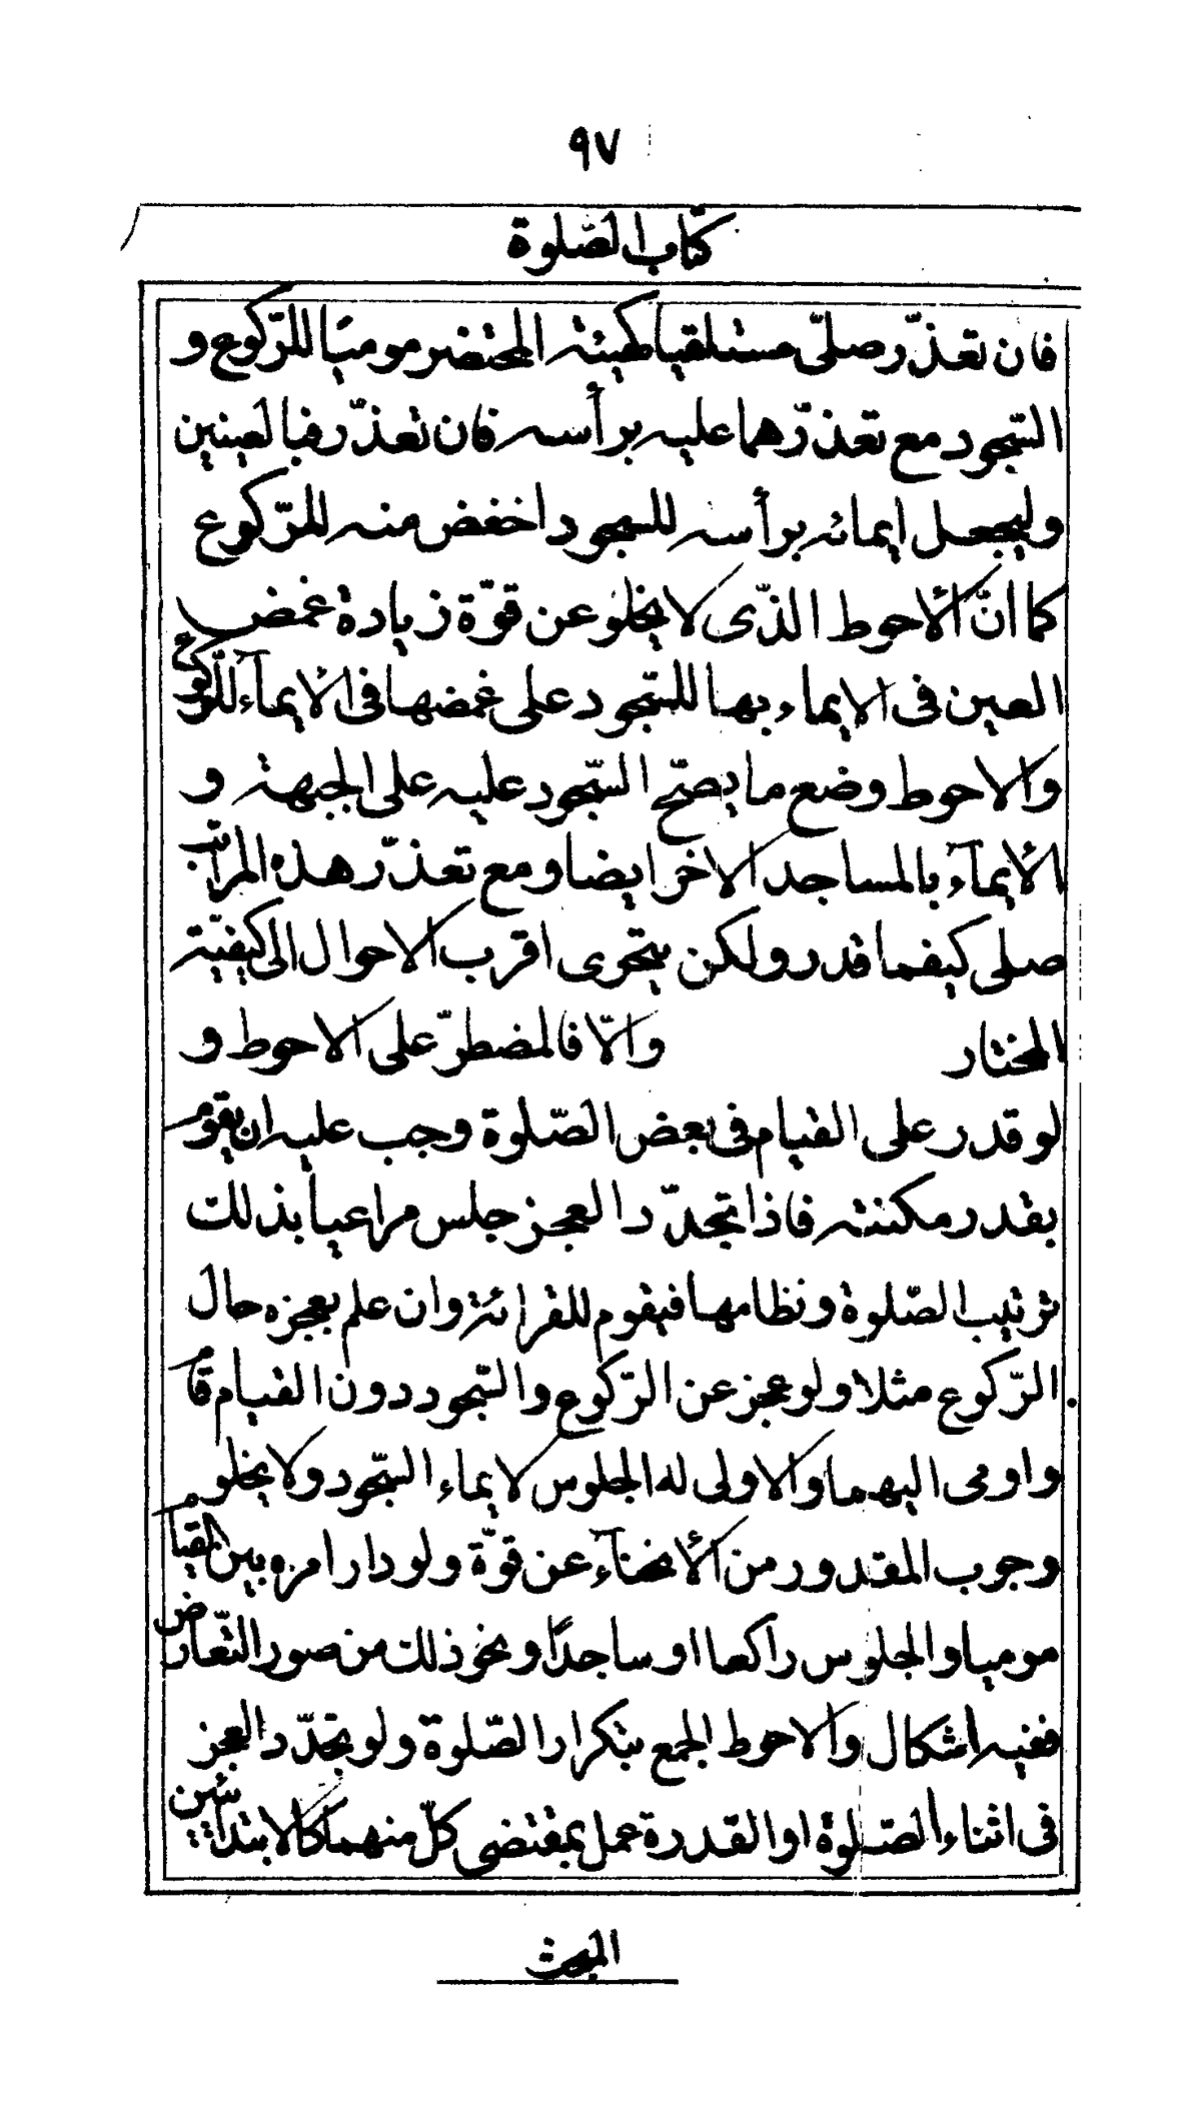 ٩٧
كتاب الصّلوة
فان تعذّر صلّى مستلقيا كهيئة المحتضر موميًا للرّكوع و
السّجود مع تعذّرهما عليه برأسه فان تعذّر فبالعينين
وليجعل ايمائه برأسه للسجود اخفض منه للرّكوع
كما انّ الأحوط الذّى لا يخلو عن قوّة زيادة غمض
العين فى الايماء بها للسّجود على غمضها فى الأيمآء للرّكوع
والاحوط وضع ما يصحّ السّجود عليه على الجبهة و
الأيمآء بالمساجد الاخر ايضا ومع تعذّر هذه المراتب
صلى كيفما قدر ولكن يتحرى اقرب الاحوال الى كيفيّة
المختار والّا فالمضطرّ على الاحوط و
لو قدر على القيام فى بعض الصّلوة وجب عليه ان يقوم
بقدر مكنته فاذا تجدّد العجز جلس مراعياً بذلك
ترتيب الصّلوة ونظامها فيقوم للقرائة وان علم بعجزه حال
الرّكوع مثلا ولو عجز عن الرّكوع والسّجود دون القيام قام
واومى اليهما والاولى له الجلوس لايماء السّجود ولا يخلو
وجوب المقدور من الأنحنآء عن قوّة ولو دار امره بين القيام
موميا والجلوس راكعا او ساجدًا ونحو ذلك من صور التّعارض
ففيه اشكال والاحوط الجمع بتكرار الصّلوة ولو تجدّد العجز
فى اثناء الصّلوة او القدرة عمل بمقتضى كلّ منهما كالابتدائين
المبحث